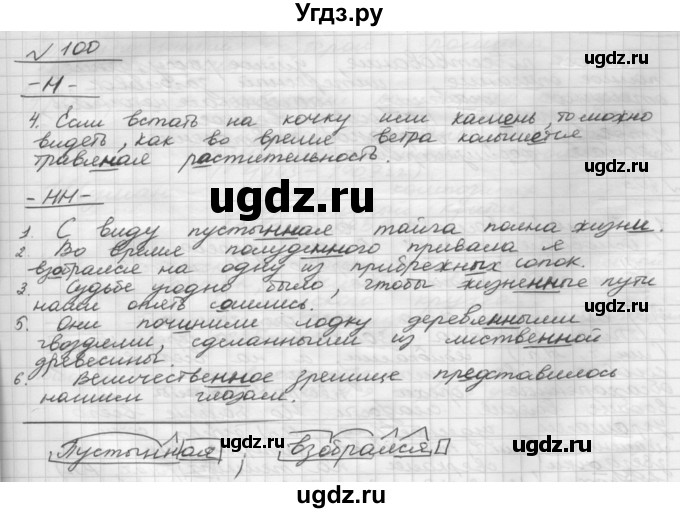 Угдз.ру
√ 100
ugdz.ru
ugdz.ru
-Н-
4. Если встать на кочку или камень, то можно
видеть, как во время ветра колышется
травяная растительность.
ugdz.ru
ugdz.ru
-НН-
1 С виду пустынная тайга полна жизни.
2 Во время полуденного привала я
взобрался на одну из прибрежных сопок.
ugdz.ru
ugdz.ru
3 Судьбе угодно было, чтобы жизненные пути
наши опять сошлись.
5. Они починили лодку деревянными
гвоздями, сделанными из лиственной
древесины.
ugdz.ru
6. Величественное зрелище представилось
нашим глазам.
ugdz.ru
ugdz.ru
Пустынная ; взобрался
ugdz.ru